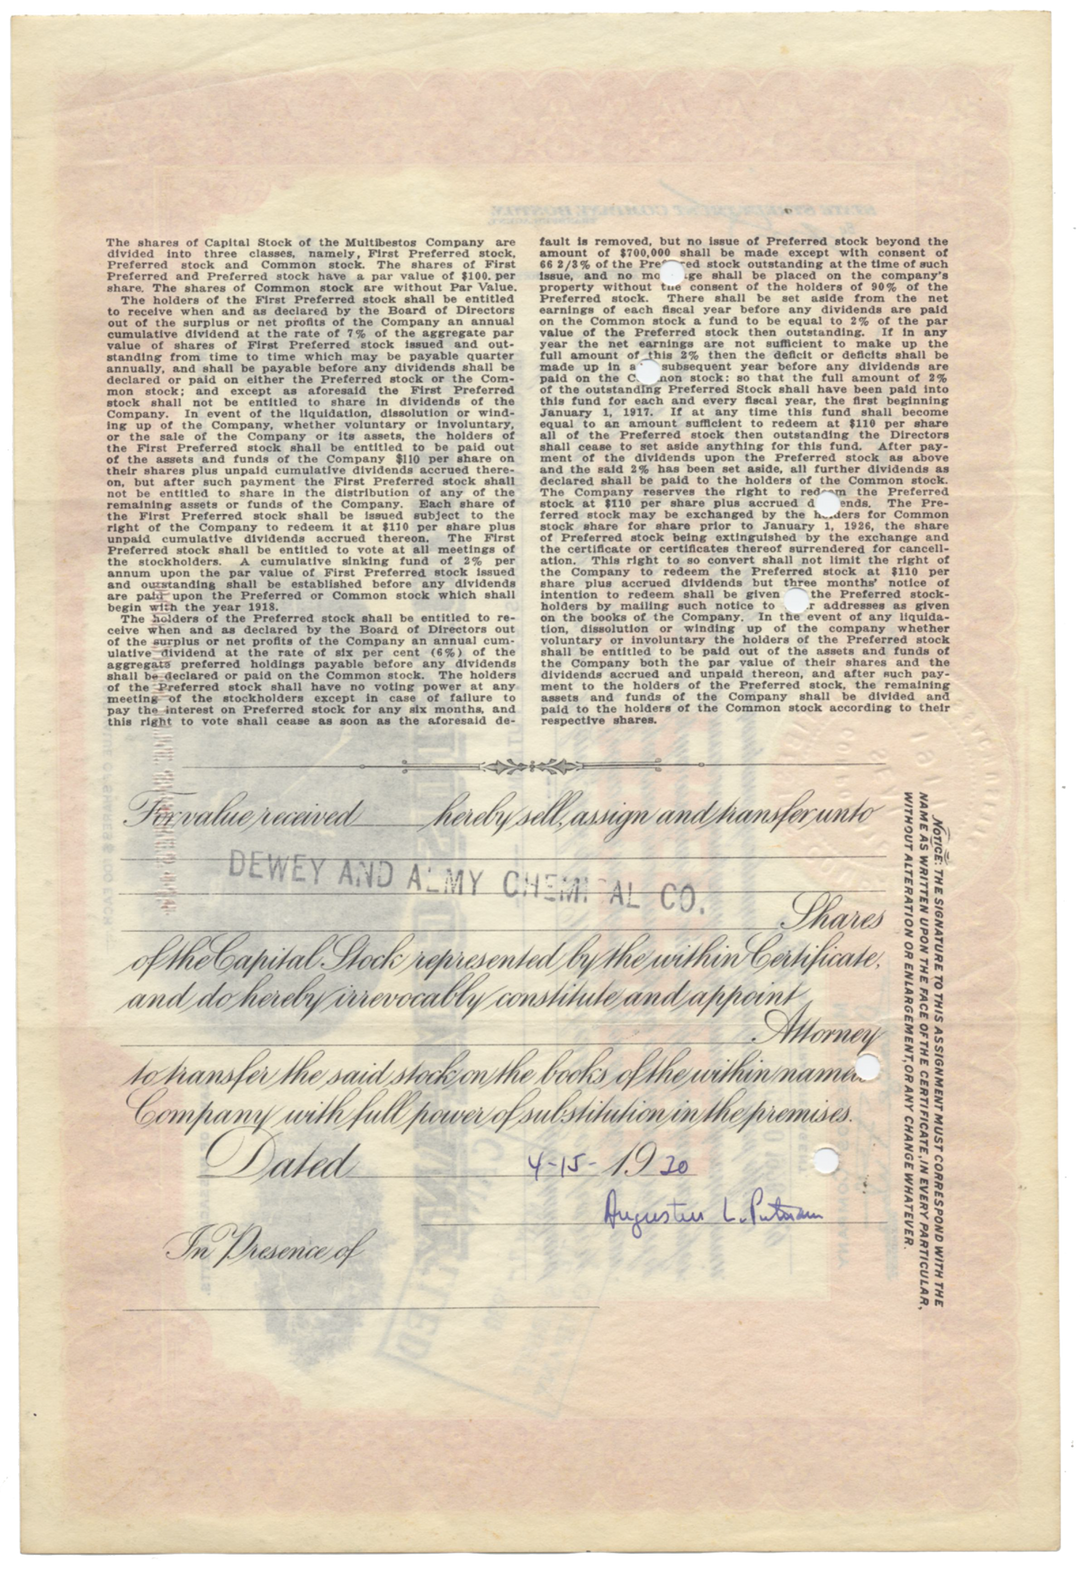 The shares of Capital Stock of the Multibestos Company are
divided into three classes, namely, First Preferred stock,
Preferred stock and Common stock. The shares of First
Preferred and Preferred stock have a par value of $100. per
share. The shares of Common stock are without Par Value.
The holders of the First Preferred stock shall be entitled
to receive when and as declared by the Board of Directors
out of the surplus or net profits of the Company an annual
cumulative dividend at the rate of 7% of the aggregate par
value of shares of First Preferred stock issued and out-
standing from time to time which may be payable quarter
annually, and shall be payable before any dividends shall be
declared or paid on either the Preferred stock or the Com-
mon stock; and except as aforesaid the First Preferred
stock shall not be entitled to share in dividends of the
Company. In event of the liquidation, dissolution or wind-
ing up of the Company, whether voluntary or involuntary,
or the sale of the Company or its assets, the holders of
the First Preferred stock shall be entitled to be paid out
of the assets and funds of the Company $110 per share on
their shares plus unpaid cumulative dividends accrued there-
on, but after such payment the First Preferred stock shall
not be entitled to share in the distribution of any of the
remaining assets or funds of the Company. Each share of
the First Preferred stock shall be issued subject to the
right of the Company to redeem it at $110 per share plus
unpaid cumulative dividends accrued thereon. The First
Preferred stock shall be entitled to vote at all meetings of
the stockholders. A cumulative sinking fund of 2% per
annum upon the par value of First Preferred stock issued
and outstanding shall be established before any dividends
are paid upon the Preferred or Common stock which shall
begin with the year 1918.
The holders of the Preferred stock shall be entitled to re-
ceive when and as declared by the Board of Directors out
of the surplus or net profits of the Company an annual cum-
ulative dividend at the rate of six per cent (6%) of the
aggregate preferred holdings payable before any dividends
shall be declared or paid on the Common stock. The holders
of the Preferred stock shall have no voting power at any
meeting of the stockholders except in case of failure to
pay the interest on Preferred stock for any six months, and
this right to vote shall cease as soon as the aforesaid de-
fault is removed, but no issue of Preferred stock beyond the
amount of $700,000 shall be made except with consent of
66 2/3% of the Pref red stock outstanding at the time of such
issue, and no mo ge shall be placed on the company's
property without the consent of the holders of 90% of the
Preferred stock. There shall be set aside from the net
earnings of each fiscal year before any dividends are paid
on the Common stock a fund to be equal to 2% of the par
value of the Preferred stock then outstanding. If in any
year the net earnings are not sufficient to make up the
full amount of this 2% then the deficit or deficits shall be
made up in a subsequent year before any dividends are
paid on the C on stock: so that the full amount of 2%
of the outstanding Preferred Stock shall have been paid into
this fund for each and every fiscal year, the first beginning
January 1, 1917. If at any time this fund shall become
equal to an amount sufficient to redeem at $110 per share
all of the Preferred stock then outstanding the Directors
shall cease to set aside anything for this fund. After pay-
ment of the dividends upon the Preferred stock as above
and the said 2% has been set aside, all further dividends as
declared shall be paid to the holders of the Common stock.
The Company reserves the right to redeem the Preferred
stock at $110 per share plus accrued d ends. The Pre-
ferred stock may be exchanged by the holders for Common
stock share for share prior to January 1, 1926, the share
of Preferred stock being extinguished by the exchange and
the certificate or certificates thereof surrendered for cancell-
ation. This right to so convert shall not limit the right of
the Company to redeem the Preferred stock at $110 per
share plus accrued dividends but three months' notice of
intention to redeem shall be given the Preferred stock-
holders by mailing such notice to r addresses as given
on the books of the Company. In the event of any liquida-
tion, dissolution or winding up of the company whether
voluntary or involuntary the holders of the Preferred stock
shall be entitled to be paid out of the assets and funds of
the Company both the par value of their shares and the
dividends accrued and unpaid thereon, and after such pay-
ment to the holders of the Preferred stock, the remaining
assets and funds of the Company shall be divided and
paid to the holders of the Common stock according to their
respective shares.
For value received hereby sell, assign and transfer unto
DEWEY AND ALMY CHEMICAL CO.
Shares
of the Capital Stock represented by the within Certificate,
and do hereby irrevocably constitute and appoint
Attorney
to transfer the said stock on the books of the within named
Company with full power of substitution in the premises.
Dated 4-15- 1930
Augustus L. Putnam
In Presence of
NOTICE: THE SIGNATURE TO THIS ASSIGNMENT MUST CORRESPOND WITH THE
NAME AS WRITTEN UPON THE FACE OF THE CERTIFICATE, IN EVERY PARTICULAR,
WITHOUT ALTERATION OR ENLARGEMENT, OR ANY CHANGE WHATEVER.